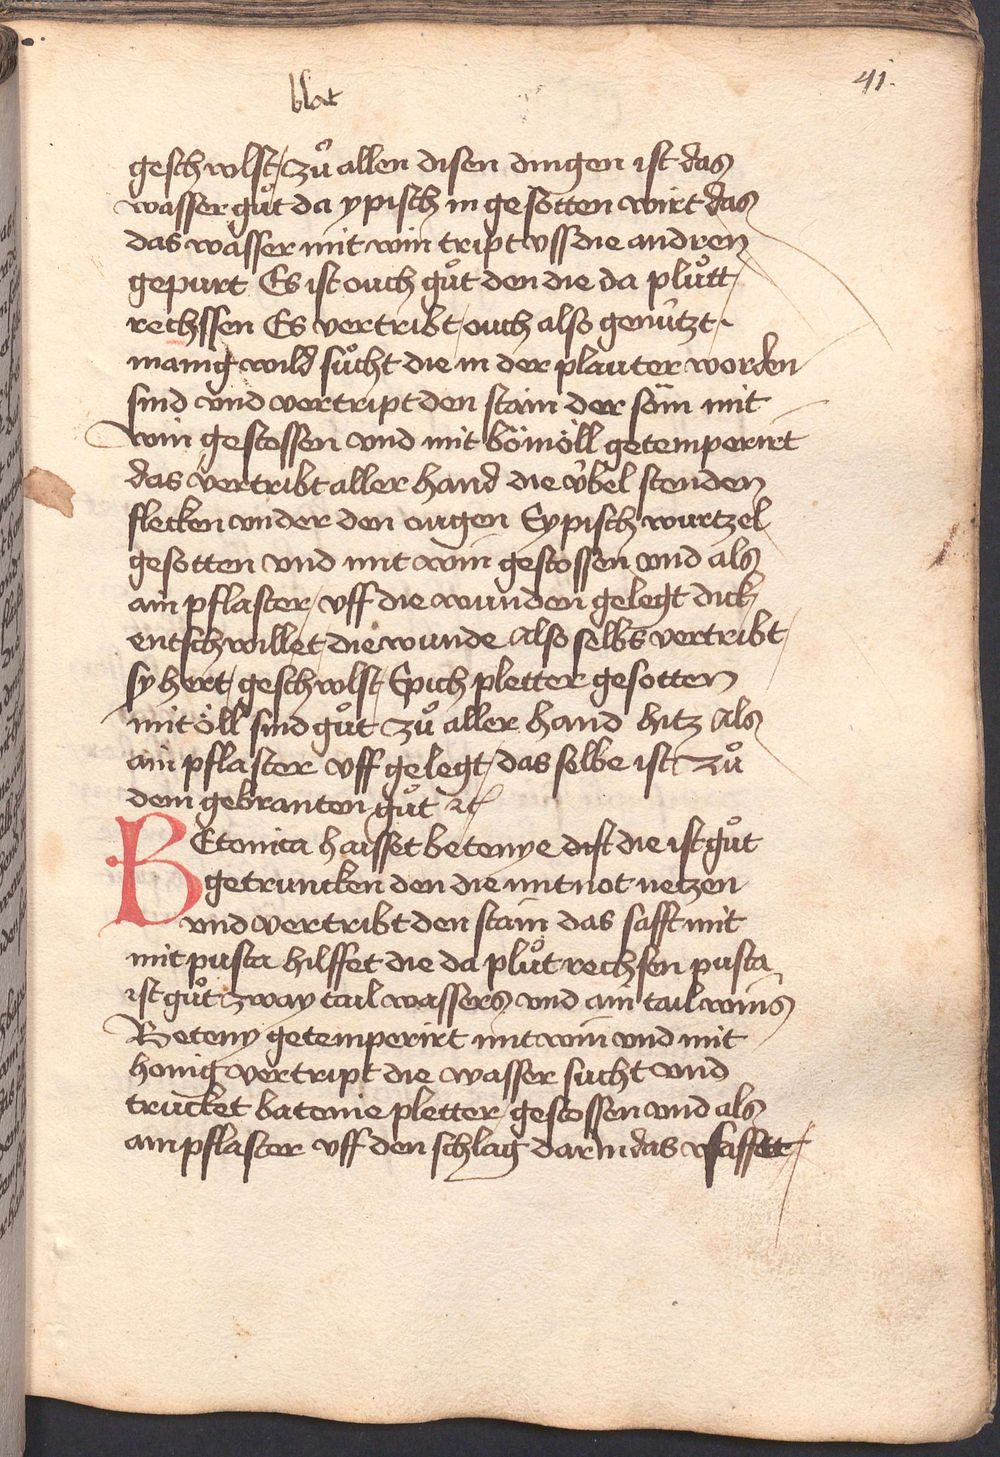 blat
41.
geschwlst / zuͦ allen disen dingen ist das
wasser guͦt da ypisch in gesotten wirt das
das wasser mit win tript vss die andren
gepurt Es ist ouch guͦt den die da pluͦtt
rechssen Es vertribt / ouch also genützt
manig wild suͦcht die in der plauter worden
sind vnd vertript den stain der säm mit
win gestossen vnd mit bömöll getemperirt
das vertribt aller hand die übel stenden
flecken vnder den ougen Eypisch wurtzel
gesotten vnd mit win gestossen vnd als
ain pflaster / vff die wunden gelegt dick
entschwillet / die wunde Also selbs vertribt
sy hert / geschwlst / Epich pletter gesotten
mit öll sind guͦt zuͦ aller hand hitz Als
ain pflaster vff gelegt / das selbe ist zuͦ
dem gebranten guͦt ꝛc
BEtonica haisset betenye dist die ist guͦt
getruncken den die mit not netzen
vnd vertribt den stain das safft mit
mit pusta hilffet die da pluͦt rechsen pusta
ist guͦt zway tail wassers vnd ain tail wins
Beteny getemperirt mit win vnd mit
honig vertript die wasser sucht vnd
trucket batonie pletter / gestossen vnd als
ain pflaster vff den schlag dar in das